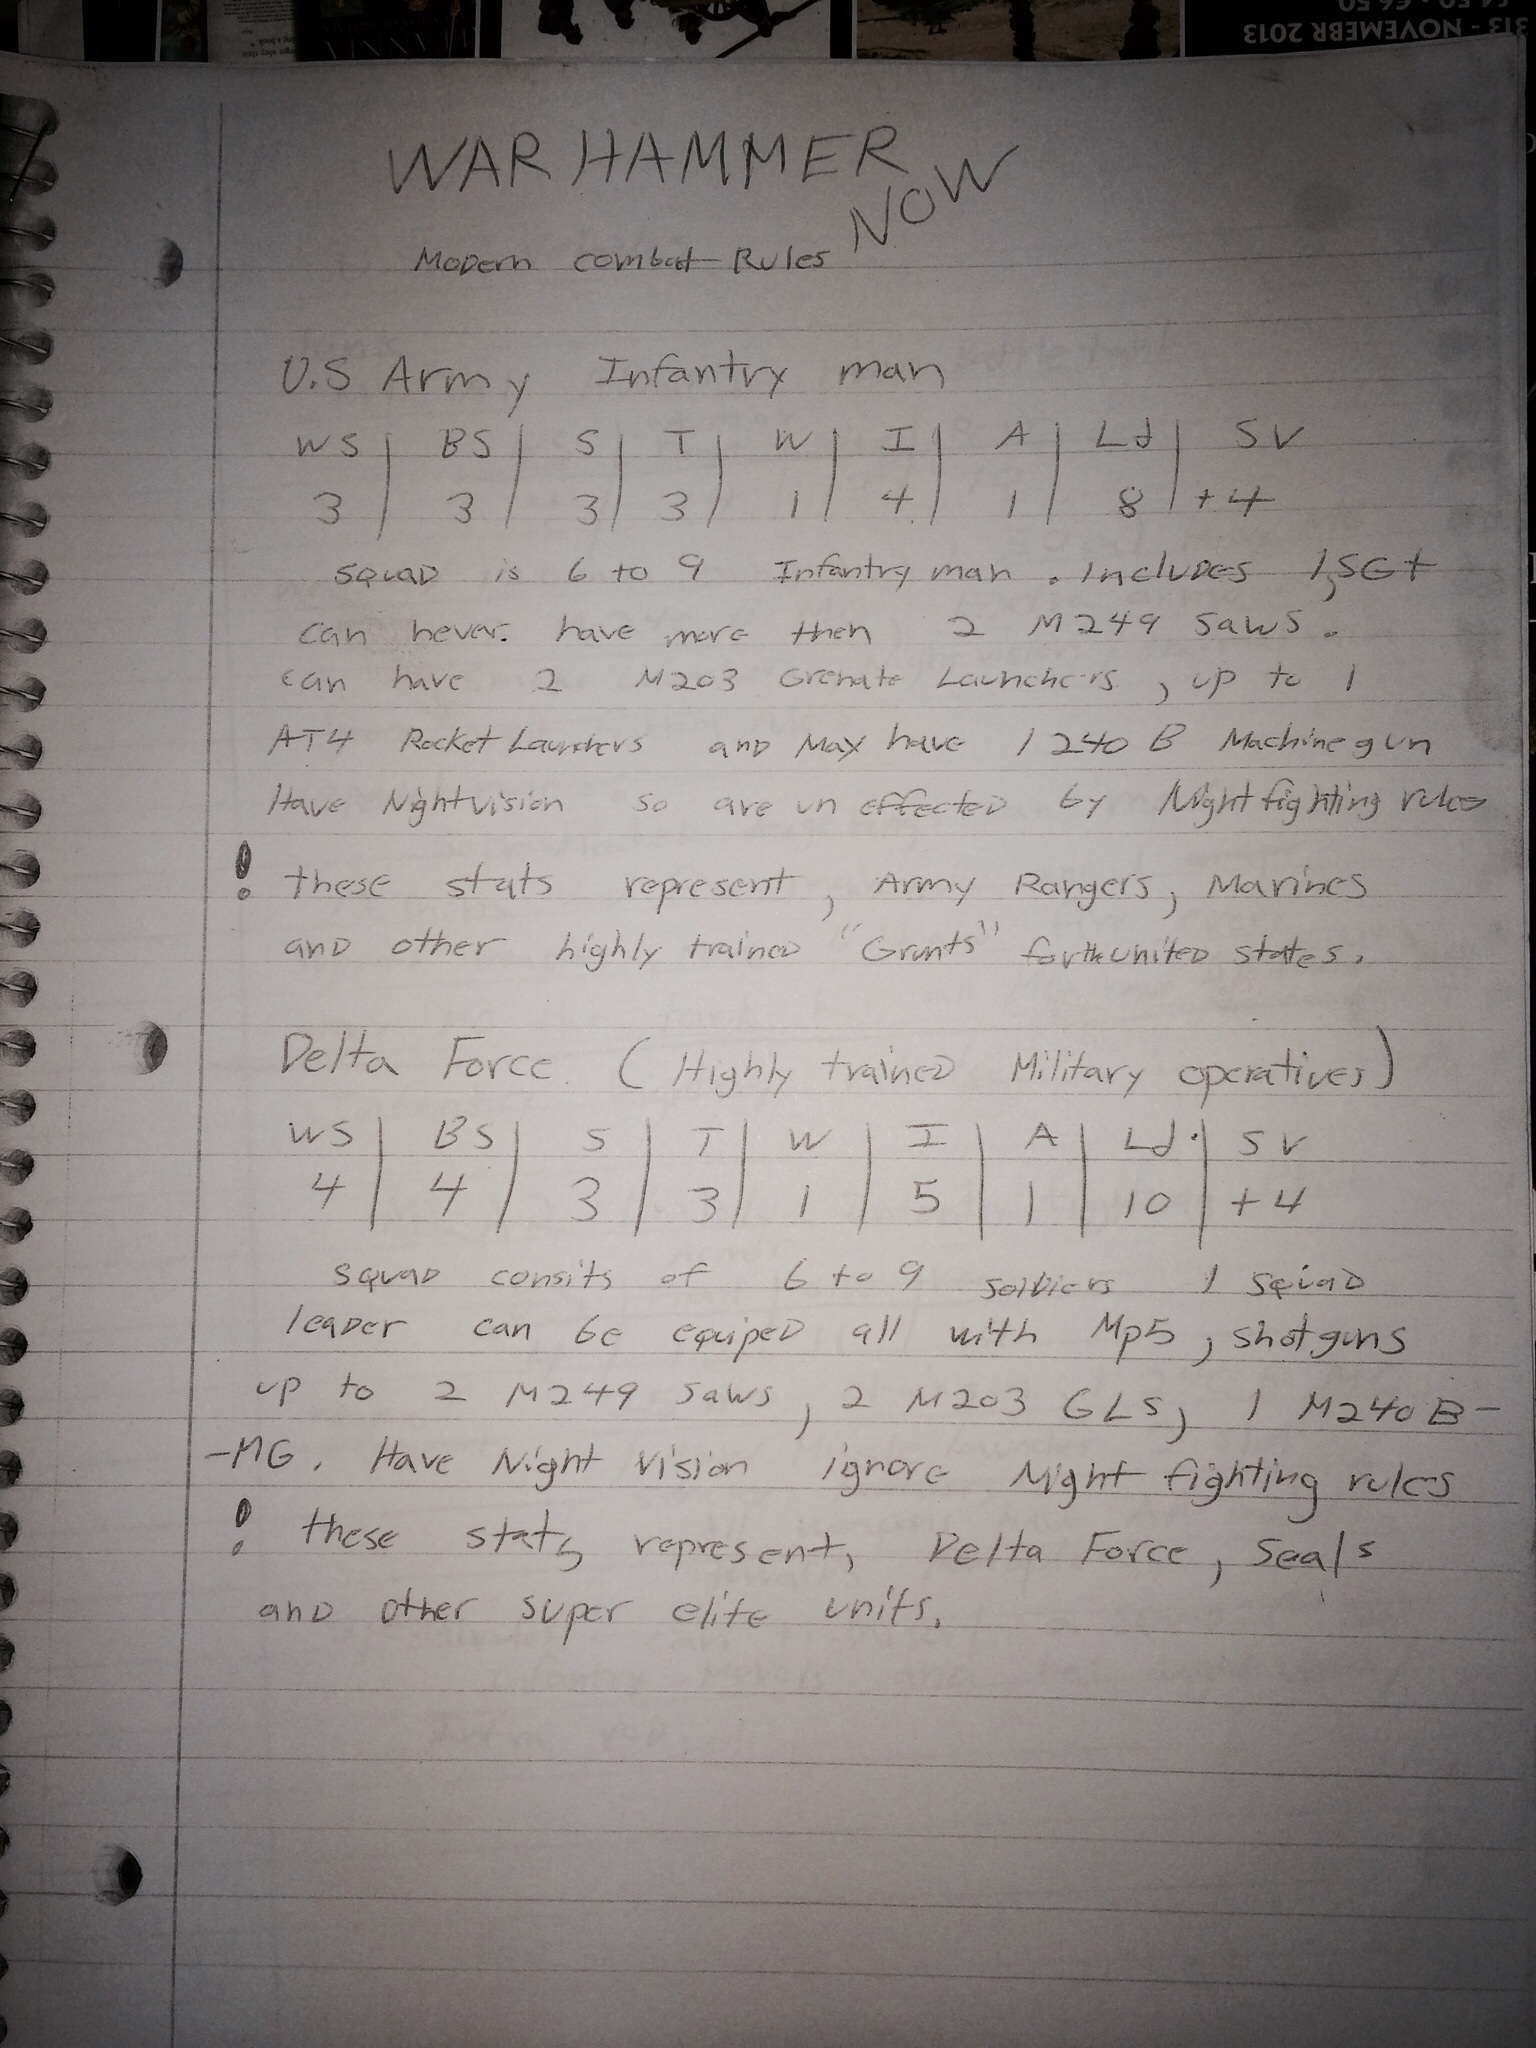 313 - NOVEMEBR 2013
WARHAMMER
NOW
Modern combat Rules
U.S Army Infantry man
WS | BS | S | T | W | I | A | Ld | SV
3 | 3 | 3 | 3 | 1 | 4 | 1 | 8 | +4
squad is 6 to 9 Infantry man. Includes 1, SGt
can never. have more then 2 M249 saws.
can have 2 M203 Grenate Launchers, up to 1
AT4 Rocket Launchers and May have 1 240 B Machinegun
Have Nightvision so are un effected by Nightfighting rules
! these stats represent, Army Rangers, Marines
and other highly trained "Grunts" for the united states.
Delta Force. (Highly trained Military operatives)
WS | BS | S | T | W | I | A | Ld. | SV
4 | 4 | 3 | 3 | 1 | 5 | 1 | 10 | +4
squad consits of 6 to 9 soldiers 1 squad
leader can be equiped all with Mp5, shotguns
up to 2 M249 saws, 2 M203 GLS, 1 M240B-
-MG. Have Night vision ignore Night fighting rules
! these stats represent, Delta Force, Seals
and other super elite units.